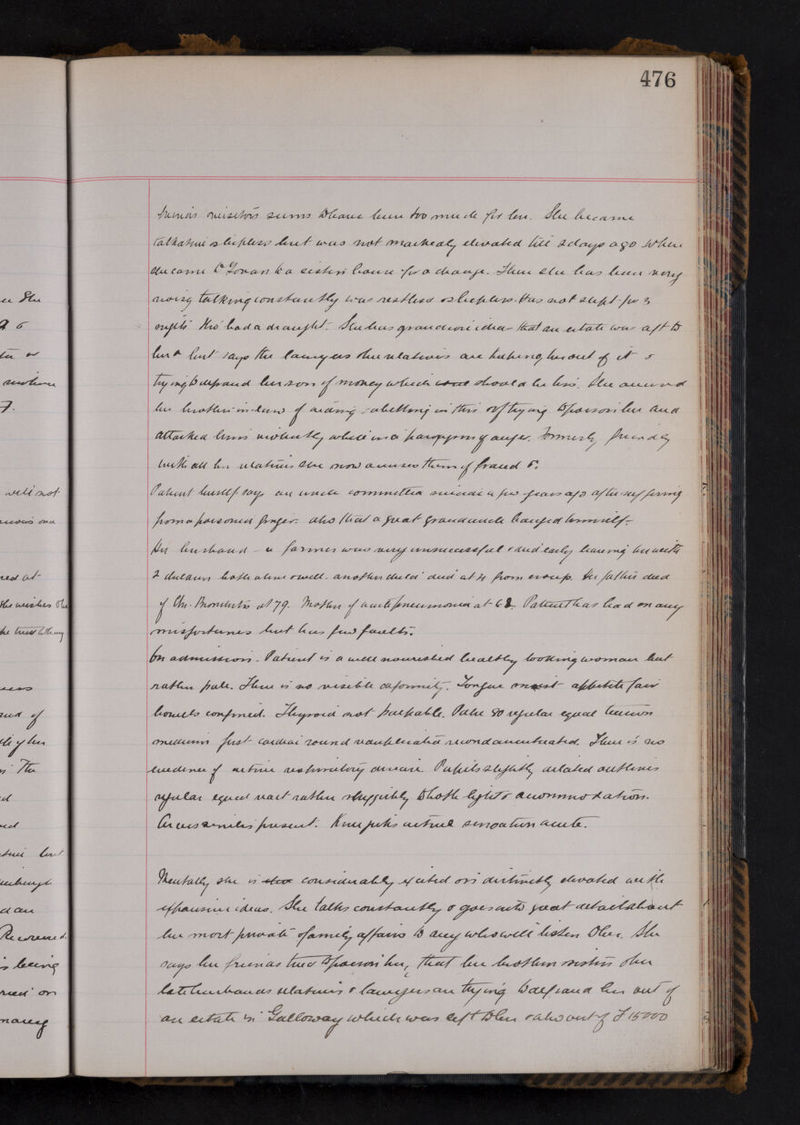 476
friends visitors seems to have been too much for her. She became
talkative & sleepless but was not markedly elevated till 2 days ago when
she came to Govan to a sister's house for a change. Here she has been very
noisy talking constantly was restless & sleepless. Has not slept for 3
nights tho' had a draught. She has grandiose ideas that an estate was left to
her & but says the lawyers & her relatives are keeping her out of it &
trying to defraud her son of money which should be his. She accused
her brother-in-law of aiding & abetting in this & of trying to poison her and
attacked him violently while in a paroxysm of anger. Formerly friendly
with all her relatives she now accuses them of fraud &c.
Patient herself says an uncle committed suicide a few years ago after suffering
from a poisoned finger. also that a great granduncle hanged himself.
Her husband - a farmer was very unsuccessful & died early leaving her with
2 children both alive & well. another child died at 4 from croup. Her father died
of Chr. Bronchitis at 79. Mother of acute pneumonia at 62. Patient has had many
misfortunes but has few faults.
On admission. Patient is a well nourished healthy looking woman but
rather pale. There is no visible deformity. Tongue moist appetite fair
bowels confined. Thyroid not palpable. Pulse 80 regular equal tension
medium first cardiac sound reduplicated second accentuated. There is no
evidence of active respiratory disease. Pupils slightly dilated outlines
regular equal react rather sluggishly to both light & accommodation.
Arcus senilis present. Knee jerks active sensation acute.
Mentally she is considerably excited & is distinctly elevated with
expansive ideas. She talks constantly & goes into great detail about
her most private & family affairs to any who will listen to her. She
says her friends tried to poison her, that her brother sisters & her
late husbands relatives & lawyers are trying to defraud her out of
an estate in Galloway which was left to her & also out of £15000
u She
not
The